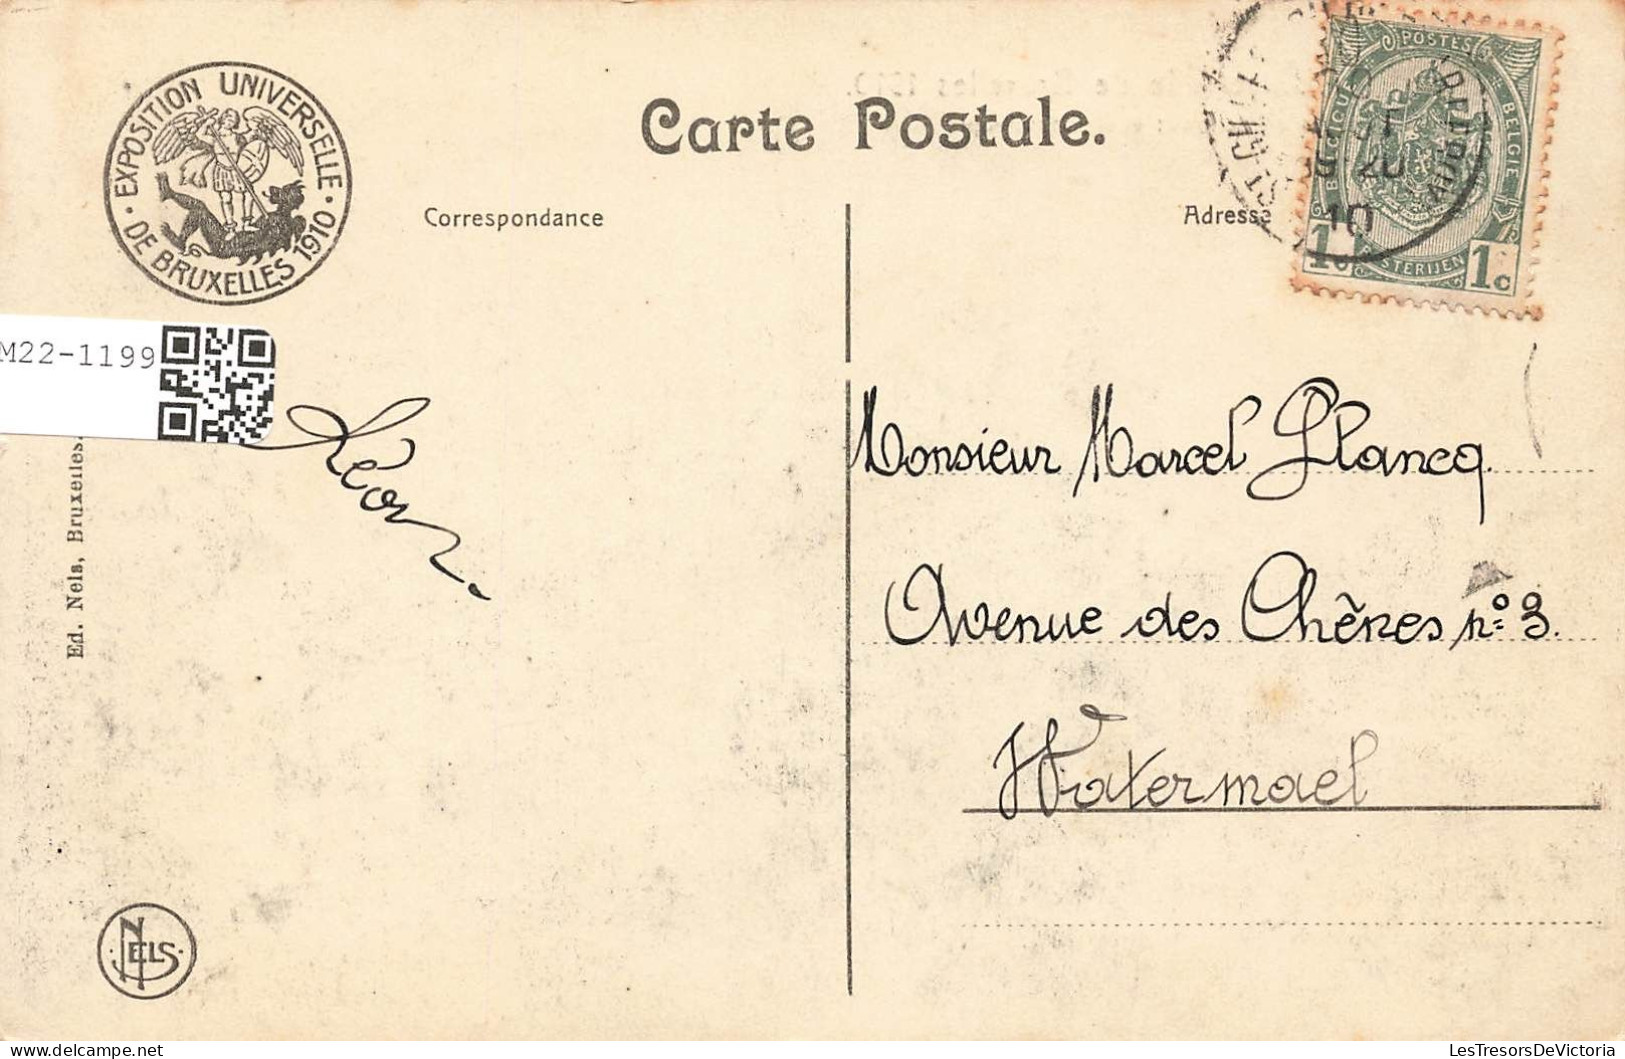 EXPOSITION UNIVERSELLE
DE BRUXELLES 1910
Carte Postale.
Correspondance
Adresse
POSTES
BELGIQUE
BELGIË
POSTERIJEN
1c 1c
10
M22-1199
Ed. Nels, Bruxelles.
Léon.
Monsieur Marcel Plancq.
Avenue des Chênes n:o 3.
Watermael
NELS
LesTresorsDeVictoria